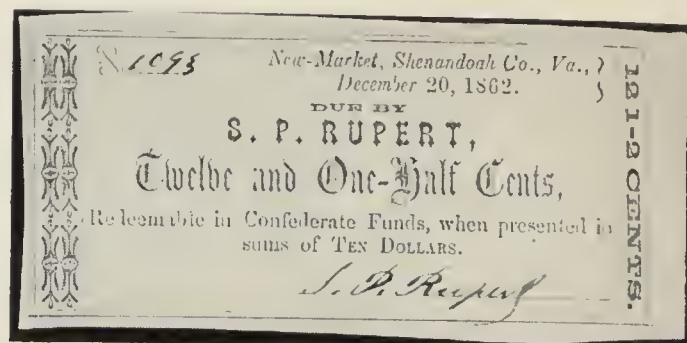 N. 1093
New-Market, Shenandoah Co., Va.,
December 20, 1862.
DUE BY
S. P. RUPERT,
Twelve and One-Half Cents,
Redeemable in Confederate Funds, when presented in
sums of TEN DOLLARS.
S. P. Rupert
12 1-2 CENTS.